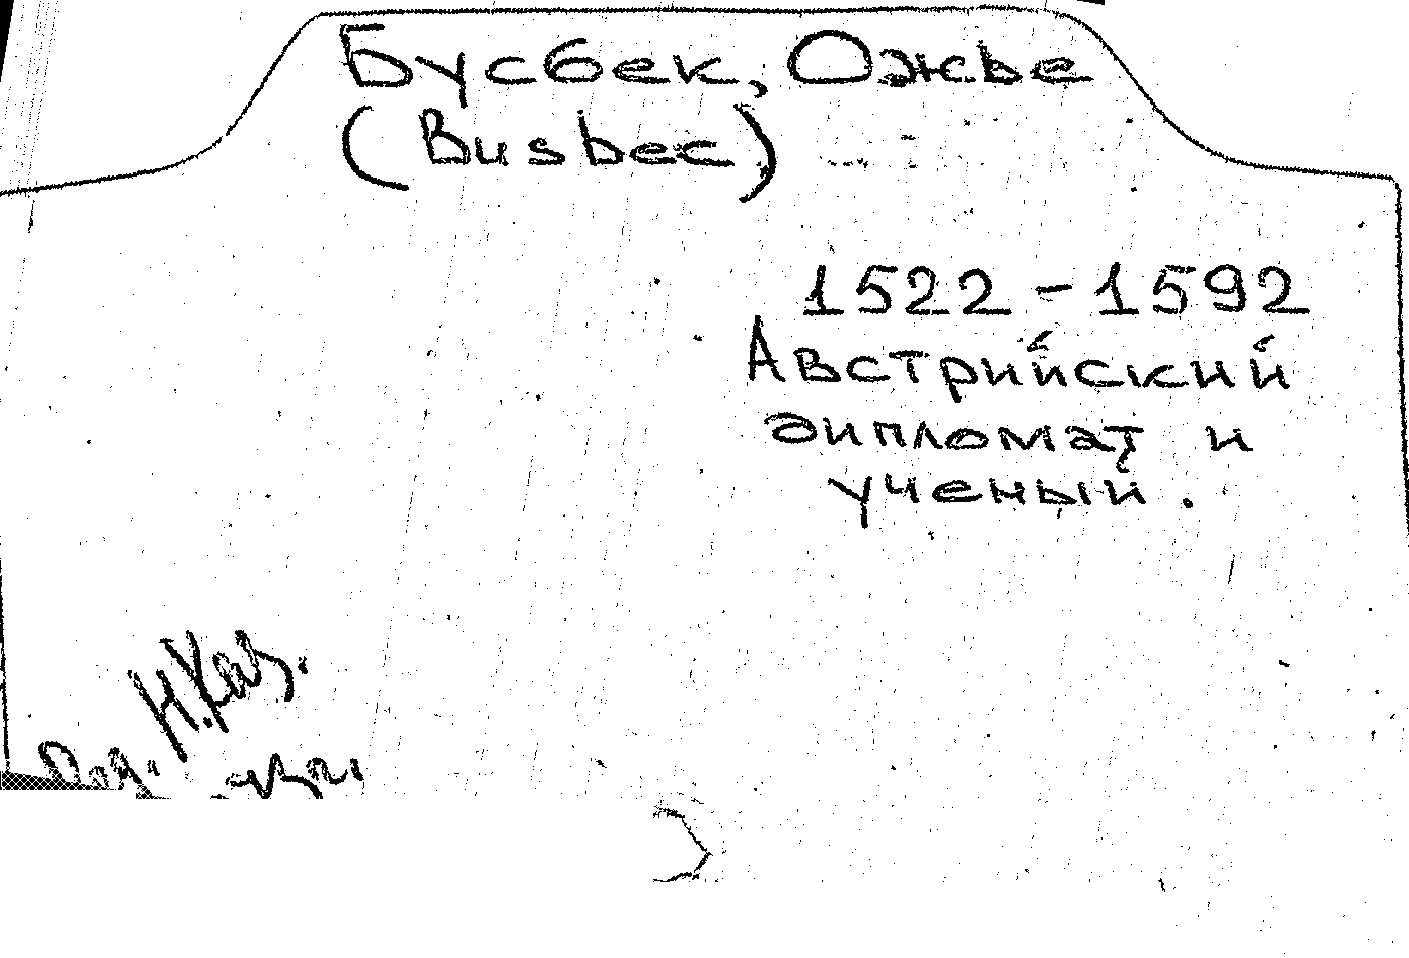 Бусбек, Ожье
(Busbec)
1522 - 1592
Австрийский
дипломат и
ученый.
Н.Каз.